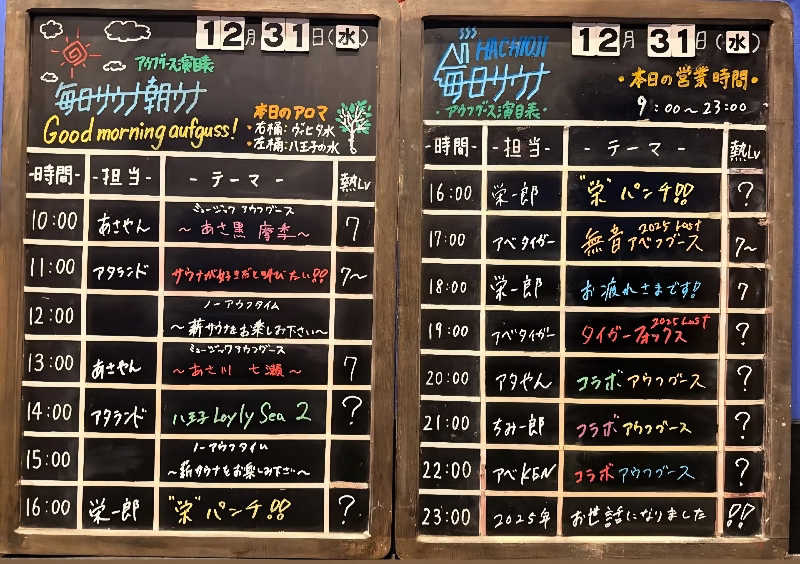 12月31日(水)
アウフグース演目表
毎日サウナ朝ウナ
Good morning aufguss!
本日のアロマ
・右桶:ヴィヒタ水
・左桶:八王子の水
-時間- -担当- -テーマ- 熱Lv
10:00 あさやん ミュージックアウフグース 7
〜あさ黒 摩季〜
11:00 アタランド サウナが好きだと叫びたい!! 7〜
12:00 ノーアウフタイム
〜薪サウナをお楽しみ下さい〜
13:00 あさやん ミュージックアウフグース 7
〜あさ川 七瀬〜
14:00 アタランド 八王子 Loyly Sea 2 ?
15:00 ノーアウフタイム
〜薪サウナをお楽しみ下さい〜
16:00 栄一郎 "栄"パンチ!! ?
12月31日(水)
HACHIOJI
毎日サウナ
・アウフグース演目表・
・本日の営業時間・
9:00〜23:00
-時間- -担当- -テーマ- 熱Lv
16:00 栄一郎 "栄"パンチ!! ?
17:00 アベタイガー 2025 Last 7〜
無音アベフグース
18:00 栄一郎 お疲れさまです!! 7
19:00 アベタイガー 2025 Last ?
タイガーフォックス
20:00 アタやん コラボアウフグース ?
21:00 ちみ一郎 コラボアウフグース ?
22:00 アベKEN コラボアウフグース ?
23:00 2025年 お世話になりました !!